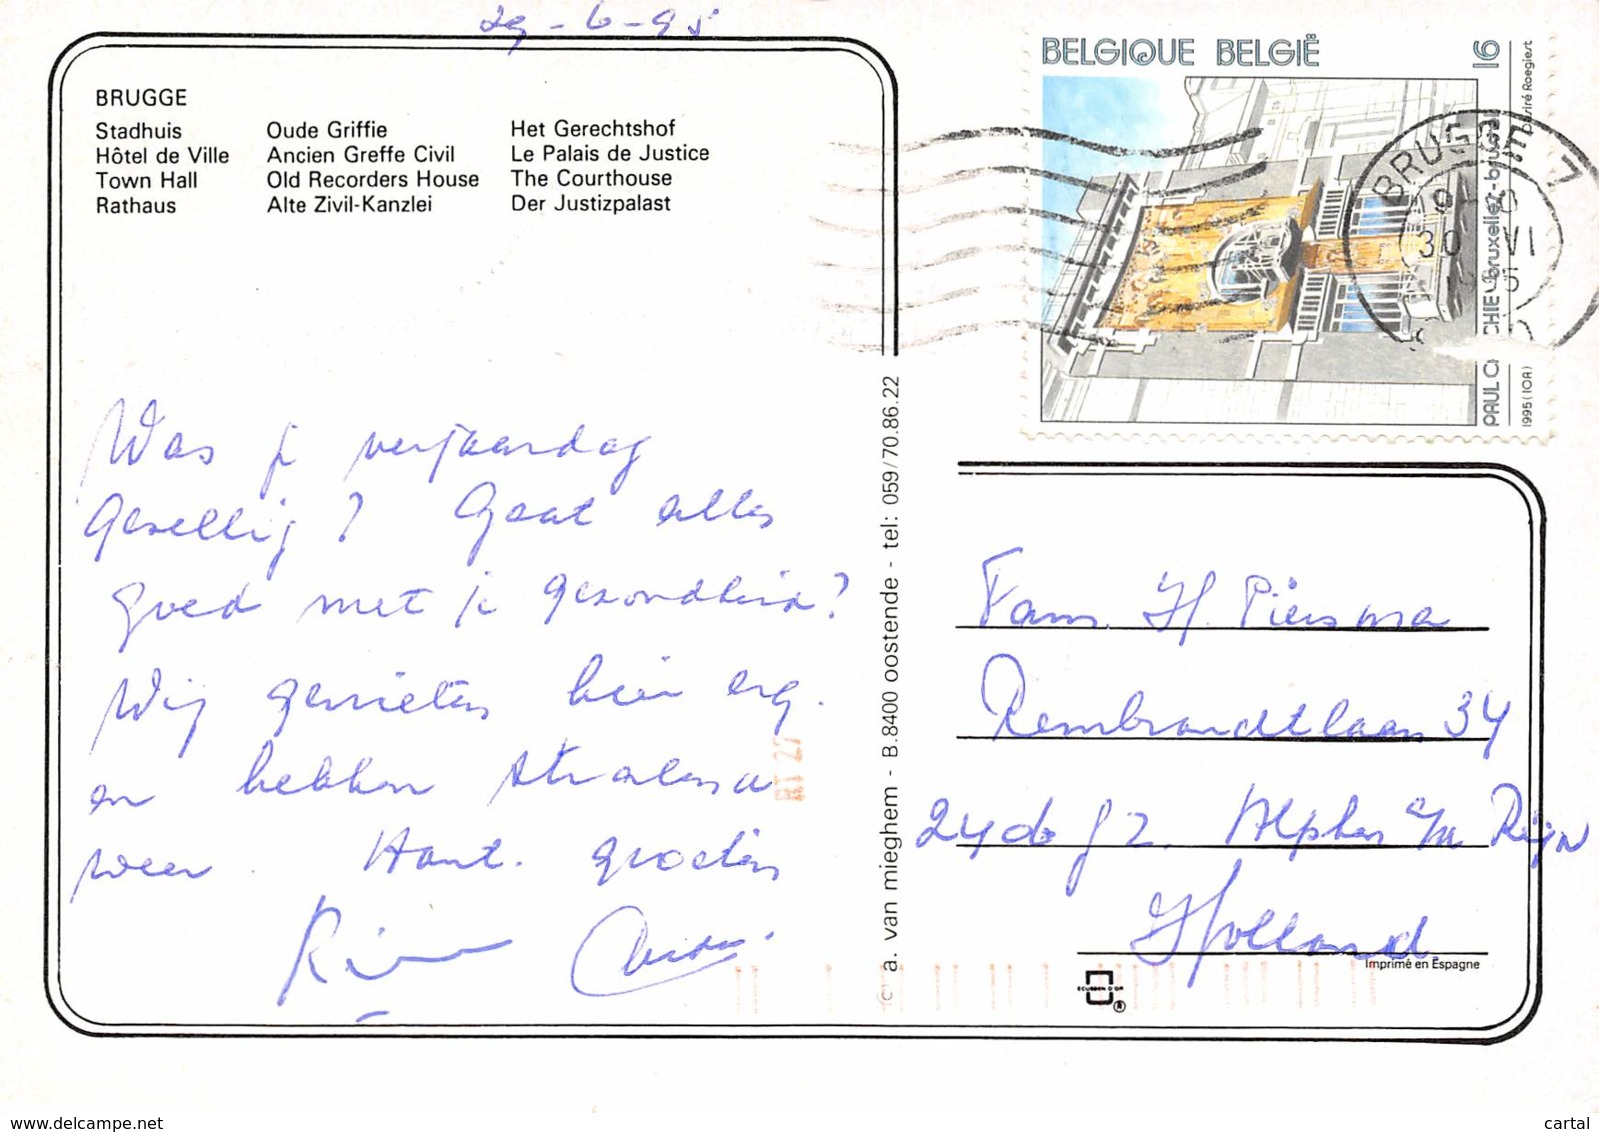 29-6-95
BRUGGE
Stadhuis
Hôtel de Ville
Town Hall
Rathaus
Oude Griffie
Ancien Greffe Civil
Old Recorders House
Alte Zivil-Kanzlei
Het Gerechtshof
Le Palais de Justice
The Courthouse
Der Justizpalast
BELGIQUE BELGIË
16
Désiré Roegiest
PAUL C CHIE bruxelles-brussel
1995 (10A)
BRUGGE 7
30 VI
Was je verjaardag
Gezellig? Gaat alles
goed met je gezondheid?
Wij genieten hier erg.
en hebben stralend
weer. Hart. groeten
RT 27
© a. van mieghem - B.8400 oostende - tel: 059/70.86.22
Fam. H. Piersma
Rembrandtlaan 34
Alphen a/m Rijn
Holland.
Imprimé en Espagne
ECUSSON D'OR
®
www.delcampe.net
cartal